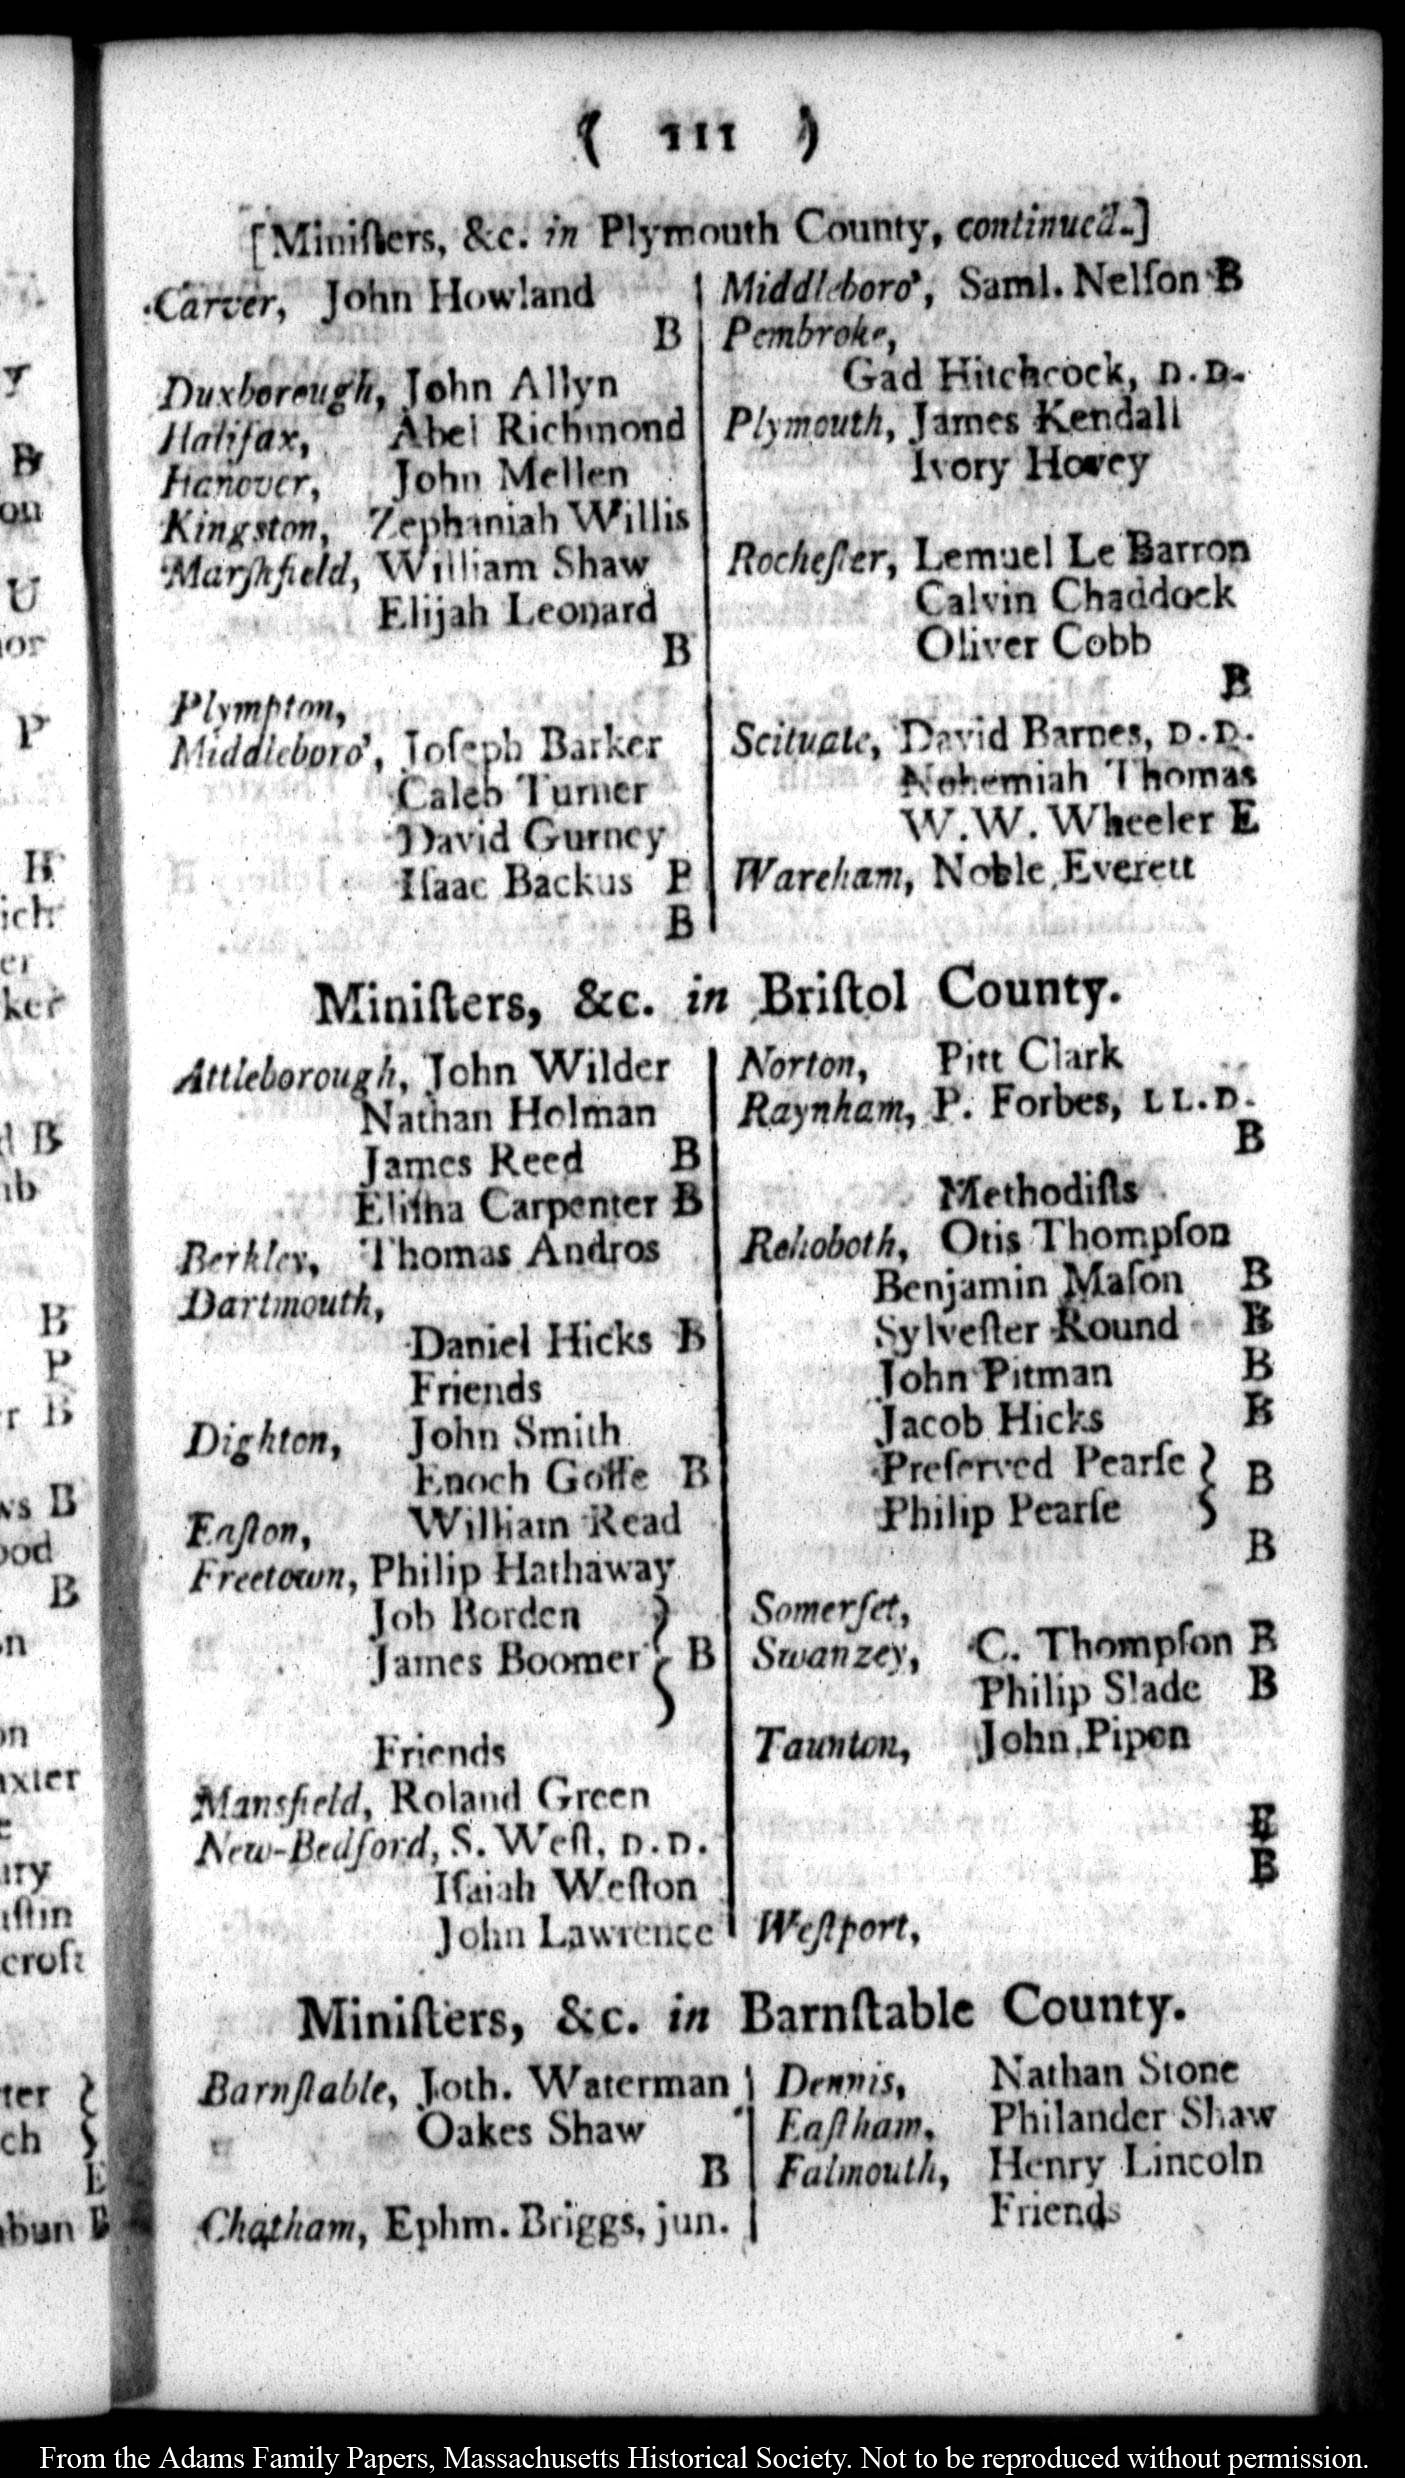 ( 111 )
[Miniſters, &c. in Plymouth County, continued.]
Carver, John Howland
B
Duxborough, John Allyn
Halifax, Abel Richmond
Hanover, John Mellen
Kingston, Zephaniah Willis
Marſhfield, William Shaw
Elijah Leonard
B
Plympton,
Middleboro', Joſeph Barker
Caleb Turner
David Gurney
Iſaac Backus B
B
Middleboro', Saml. Nelſon B
Pembroke,
Gad Hitchcock, D.D.
Plymouth, James Kendall
Ivory Hovey
Rocheſter, Lemuel Le Barron
Calvin Chaddock
Oliver Cobb
B
Scituate, David Barnes, D.D.
Nehemiah Thomas
W. W. Wheeler E
Wareham, Noble Everett
Miniſters, &c. in Briſtol County.
Attleborough, John Wilder
Nathan Holman
James Reed B
Eliſha Carpenter B
Berkley, Thomas Andros
Dartmouth,
Daniel Hicks B
Friends
Dighton, John Smith
Enoch Goffe B
Eaſton, William Read
Freetown, Philip Hathaway
Job Borden
James Boomer } B
Friends
Mansfield, Roland Green
New-Bedford, S. Weſt, D.D.
Iſaiah Weſton
John Lawrence
Norton, Pitt Clark
Raynham, P. Forbes, LL.D.
B
Methodiſts
Rehoboth, Otis Thompſon
Benjamin Maſon B
Sylveſter Round B
John Pitman B
Jacob Hicks B
Preſerved Pearſe } B
Philip Pearſe
B
Somerſet,
Swanzey, C. Thompſon B
Philip Slade B
Taunton, John Pipon
E
B
Weſtport,
Miniſters, &c. in Barnſtable County.
Barnſtable, Joth. Waterman
Oakes Shaw
B
Chatham, Ephm. Briggs, jun.
Dennis, Nathan Stone
Eaſtham, Philander Shaw
Falmouth, Henry Lincoln
Friends
From the Adams Family Papers, Massachusetts Historical Society. Not to be reproduced without permission.